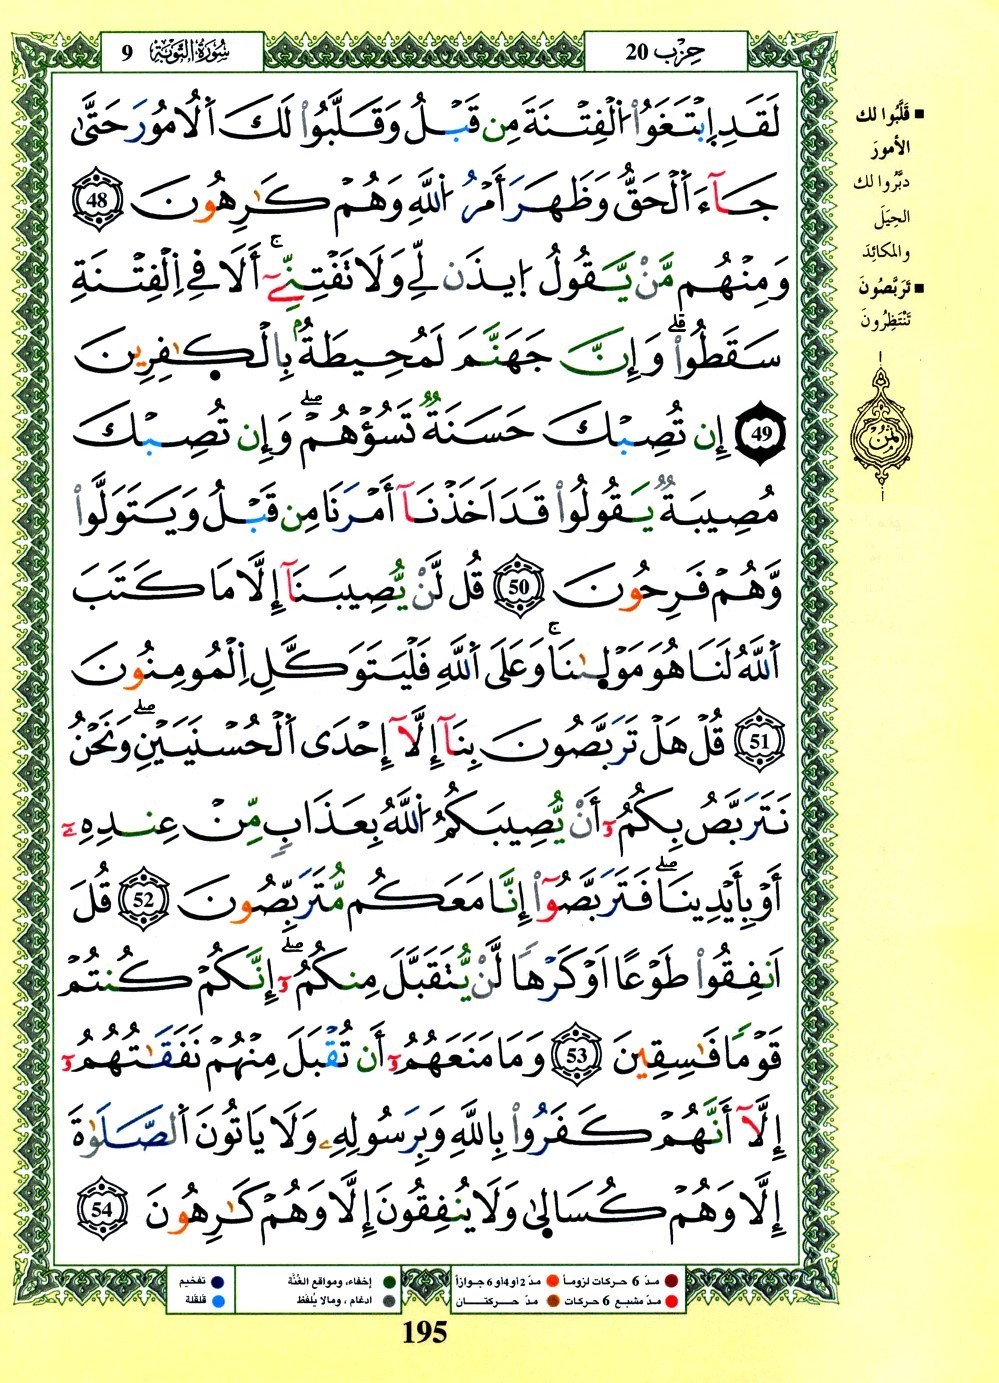 حِزْب 20
سُورَةُ التَّوْبَة 9
لَقَدِ اِ۪بْتَغَوُا۟ اُ۬لْفِتْنَةَ مِن قَبْلُ وَقَلَّبُوا۟ لَكَ اَ۬لُامُورَ حَتَّىٰ
جَآءَ اَ۬لْحَقُّ وَظَهَرَ أَمْرُ اُ۬للَّهِ وَهُمْ كَٰرِهُونَ 48
وَمِنْهُم مَّنْ يَّقُولُ اُ۪يذَن لِّے وَلَا تَفْتِنِّےٓۚ أَلَا فِے اِ۬لْفِتْنَةِ
سَقَطُوا۟ۖ وَإِنَّ جَهَنَّمَ لَمُحِيطَةُۢ بِالْكٰ۪فِرِينَ
49 إِن تُصِبْكَ حَسَنَةٌ تَسُؤْهُمْۖ وَإِن تُصِبْكَ
مُصِيبَةٌ يَقُولُوا۟ قَدَ اَخَذْنَآ أَمْرَنَا مِن قَبْلُ وَيَتَوَلَّوا۟
وَّهُمْ فَرِحُونَ 50 قُل لَّنْ يُّصِيبَنَآ إِلَّا مَا كَتَبَ
اَ۬للَّهُ لَنَا هُوَ مَوْل۪يٰنَاۚ وَعَلَى اَ۬للَّهِ فَلْيَتَوَكَّلِ اِ۬لْمُومِنُونَ
51 قُلْ هَلْ تَرَبَّصُونَ بِنَآ إِلَّآ إِحْدَى اَ۬لْحُسْنَيَيْنِۖ وَنَحْنُ
نَتَرَبَّصُ بِكُمُۥٓ أَنْ يُّصِيبَكُمُ اُ۬للَّهُ بِعَذَابٍ مِّنْ عِندِهِۦٓ
أَوْ بِأَيْدِينَاۖ فَتَرَبَّصُوٓا۟ إِنَّا مَعَكُم مُّتَرَبِّصُونَ 52 قُلَ
اَنفِقُوا۟ طَوْعًا اَوْ كَرْهًا لَّنْ يُّتَقَبَّلَ مِنكُمُۥٓۖ إِنَّكُمْ كُنتُمْ
قَوْمًا فَٰسِقِينَ 53 وَمَا مَنَعَهُمُۥٓ أَن تُقْبَلَ مِنْهُمْ نَفَقَٰتُهُمُۥٓ
إِلَّآ أَنَّهُمْ كَفَرُوا۟ بِاللَّهِ وَبِرَسُولِهِۦ وَلَا يَاتُونَ اَ۬لصَّلَوٰةَ
إِلَّا وَهُمْ كُسَال۪ىٰ وَلَا يُنفِقُونَ إِلَّا وَهُمْ كَٰرِهُونَ 54
قَلَّبُوا لك
الأمورَ
دبَّروا لك
الحِيَلَ
والمكائِدَ
تَرَبَّصُونَ
تَنْتَظِرُونَ
ثمن
مدّ 6 حركات لزوماً
مدّ 2 أو 4 أو 6 جوازاً
إخفاء، ومواقع الغُنَّة
تفخيم
مدّ مشبع 6 حركات
مدّ حركتـان
ادغام ، ومالا يُلفظ
قلقلة
195